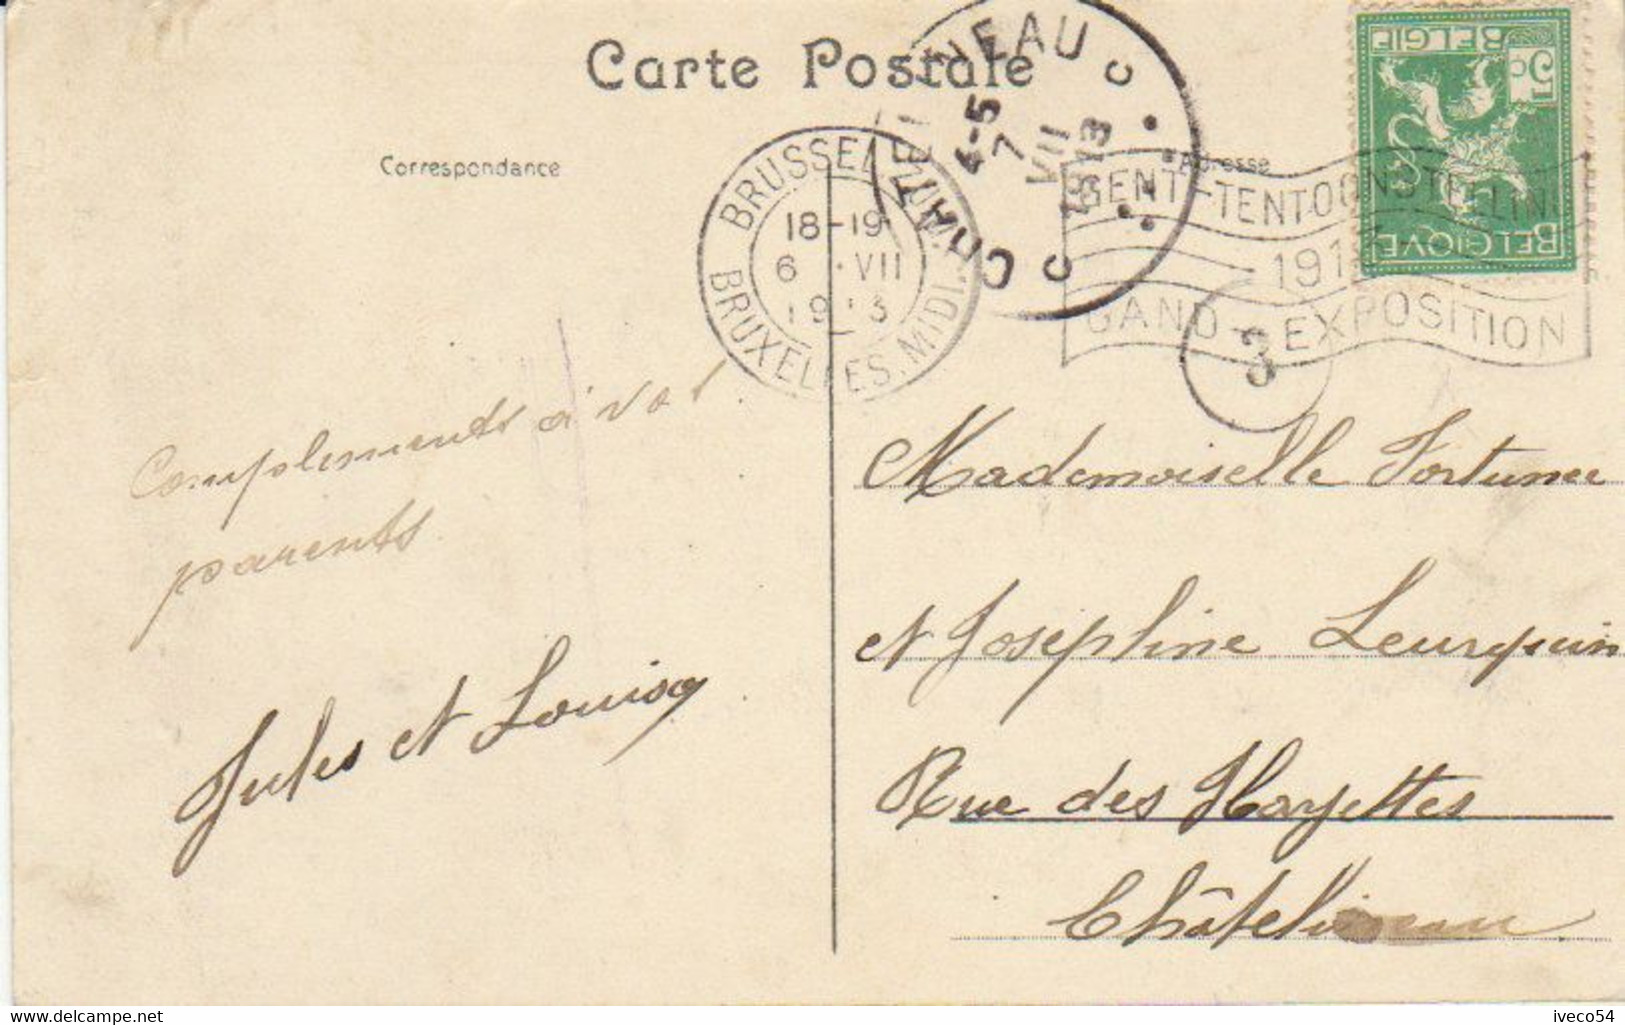 Carte Postale
Correspondance
Adresse
BRUSSEL
18-19
6 VII
1913
BRUXELLES.MIDI.
CHATELINEAU
4-5
7
VII
1913
C C
GENT-TENTOONSTELLING
1913
GAND-EXPOSITION
3
BELGIE
BELGIQUE
5c
Complements à vos
parents
Jules et Louisa
Mademoiselle Fortunee
et Josephine Leurquin
Rue des Hayettes
Châtelineau
iveco54